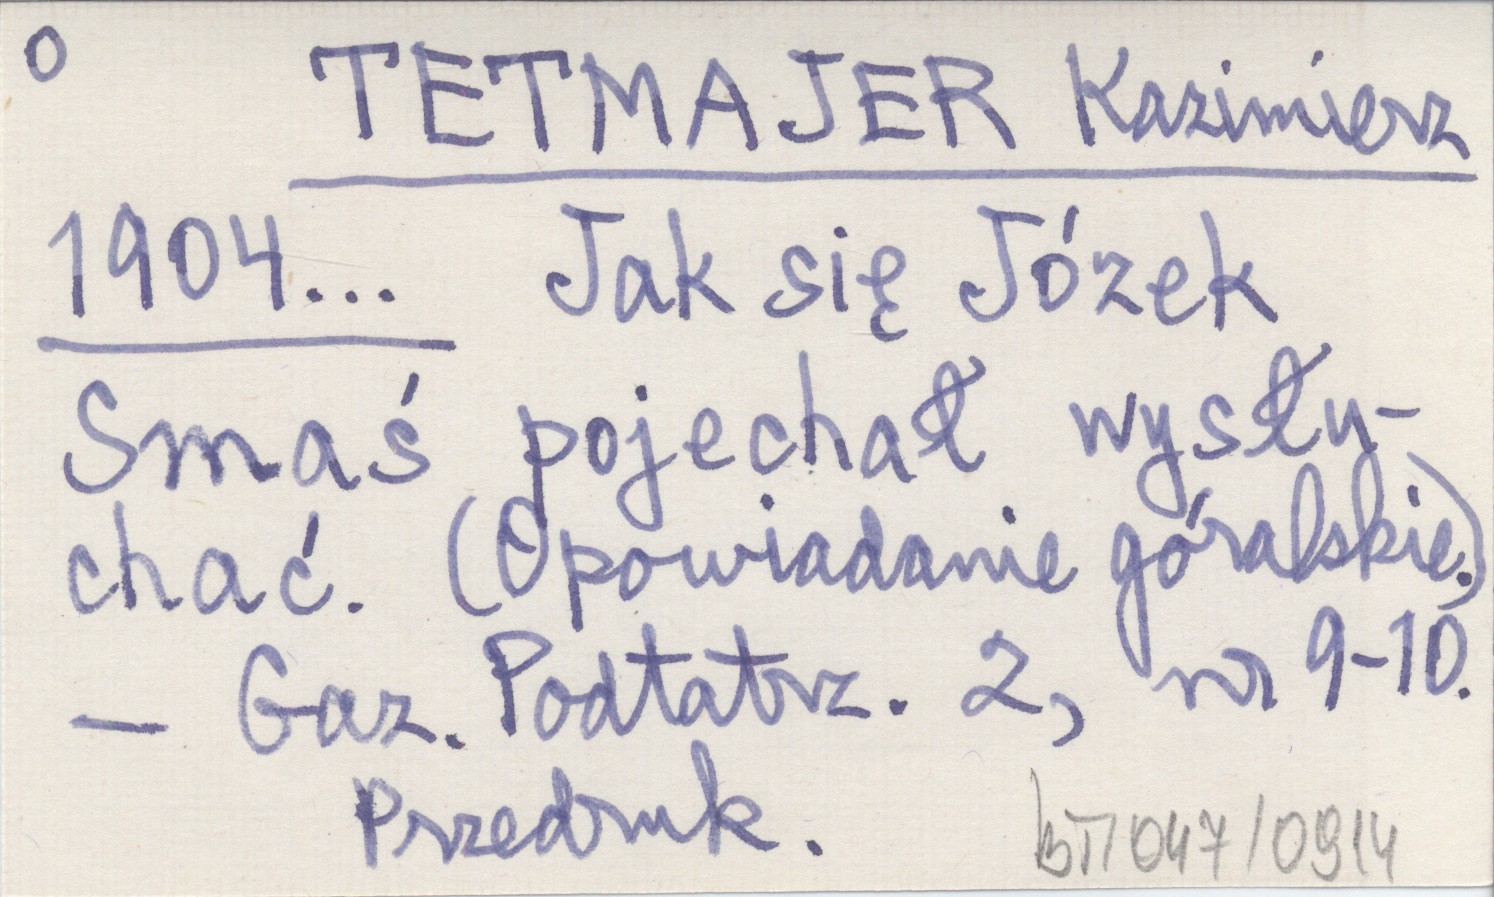 o TETMAJER Kazimierz
1904... Jak się Józek
Smaś pojechał wysłu-
chać. (Opowiadanie góralskie.)
— Gaz. Podtatrz. 2, nr 9-10.
Przedruk. BT/047/0914